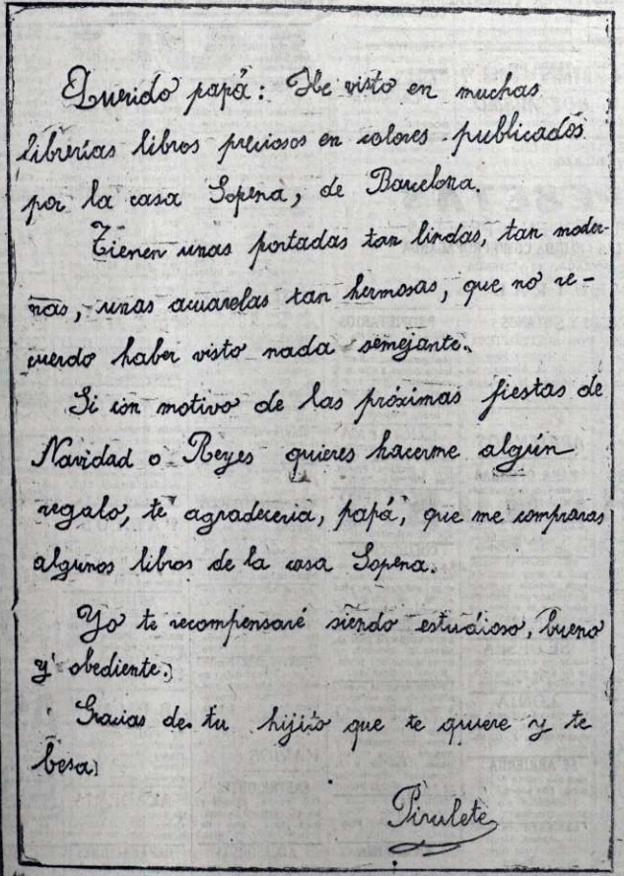 Querido papá: He visto en muchas
librerías libros preciosos en colores publicados
por la casa Sopena, de Barcelona.
Tienen unas portadas tan lindas, tan moder-
nas, unas acuarelas tan hermosas, que no re-
cuerdo haber visto nada semejante.
Si con motivo de las próximas fiestas de
Navidad o Reyes quieres hacerme algún
regalo, te agradeceria, papá, que me compraras
algunos libros de la casa Sopena.
Yo te recompensaré siendo estudioso, bueno
y obediente.
Gracias de tu hijito que te quiere y te
besa
Pirulete